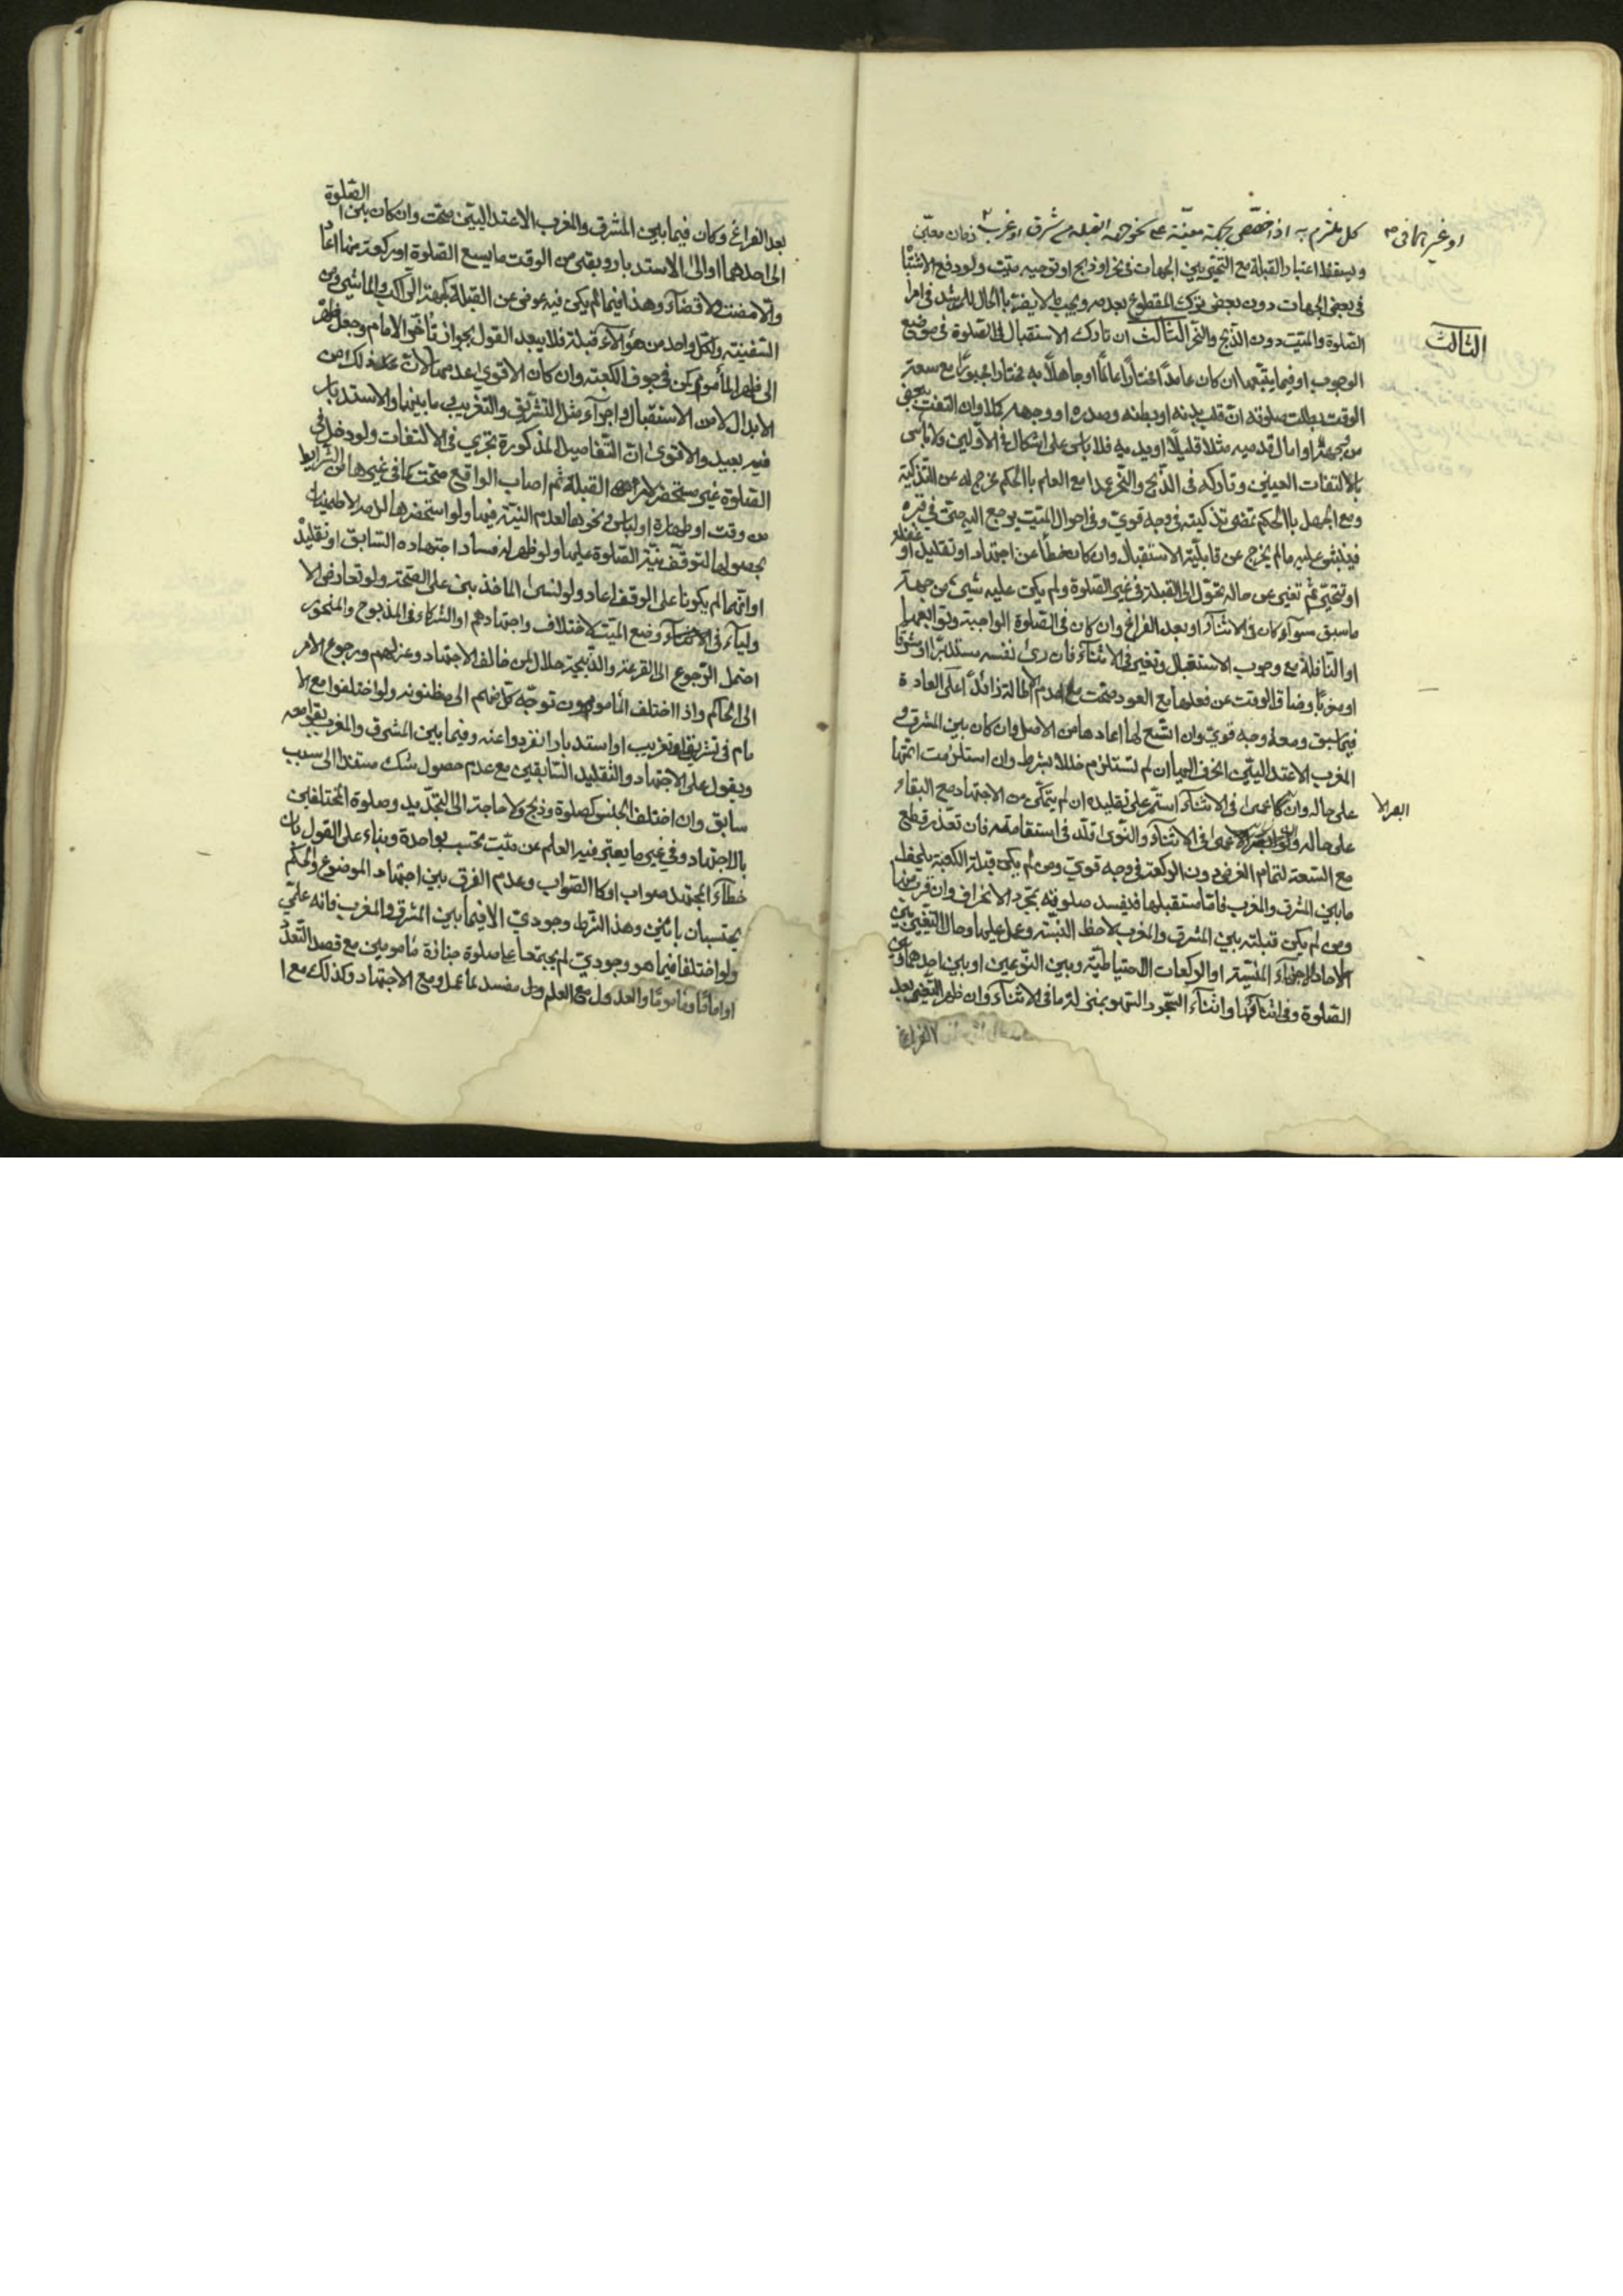 كل ملتزم به اذا خصّص بجهة معيّنة على نحو جهة القبلة من شرق او غرب زمان معيّن
او غيرهما في
ويسقط اعتبار القبلة مع التحيّر بين الجهات في نحر او ذبح او توجيه ميّت ولو دفع الاشتبا
في بعض الجهات دون بعض ترك المقطوع بعدمه ويجب الاحال للرشد في امر
الصّلوة والميّت دون الذّبح والنّحر الثّالث ان تارك الاستقبال في الصّلوة في موضع
الثالث
الوجوب او فيما يتبّعها ان كان عامداً مختاراً عالماً او جاهلاً به مختارا مجبوراً مع سعة
الوقت بطلت صلوته ان قلب بدنه او بطنه وصدره او وجهه كلا وان التفت ببعض
من وجهه او امال قدميه مثلا قليلاً او يديه فلا باس على اشكال في الاوّلين ولا باس
بالالتفات العينين وتاركه في الذّبح والنّحر عمدا مع العلم بالحكم مخرج له عن التّذكية
ومع الجهل بالحكم تمضى تذكيته في وجه قويّ وفي احوال الميّت يرجع اليه حتّى في قبره
فينبش عليه ما لم يخرج عن قابليّة الاستقبال وان كان خطأ عن اجتهاد او تقليد او غفلة
او تحيّر ثم تغيّر عن حاله تحوّل الى القبلة في غير الصّلوة ولم يكن عليه شيء من جهة
ما سبق سوآء كان في الاثنآء او بعد الفراغ وان كان في الصّلوة الواجبة وتوابعها
او النّافلة مع وجوب الاستقبال وتغيّر في الاثنآء فان رئ نفسه مستدبراً او مشرقا
او مغرباً وضاق الوقت عن فعلها مع العود صحّت مع عدم الاطالة زائداً على العادة
فيما سبق ومعه وجه قويّ وان اتّسع لها اعادها من الاصل وان كان بين المشرق و
المغرب الاعتداليّين انحرف اليها ان لم تستلزم خللا بشرط وان استلزمت اتمّها
على حاله وان كان عمى في الاثنآء استمرّ على تقليده ان لم يتمكّن من الاجتهاد مع البقاء
البصر الا
على حاله ولو الاعمى في الاثنآء والتوى قلّد في استقامته فان تعذّر قطع
مع السّعة لتمام الفرض دون الركعة في وجه قويّ ومن لم يكن قبلة الكعبة يلحظ
ما بين المشرق والمغرب فامّا مستقبلها فيفسد صلوته بمجرد الانحراف وان قرب منها
ومن لم يكن قبلته بين المشرق والمغرب لاحظ النّسبة وعمل عليها وحال التّغيّر بين
الاجزآء المنسيّة او الركعات الاحتياطيّة وبين النّوعين او بين احدهما وبين
الصّلوة وفي اثنائها واثنآء السّجود السّهو بمنزلة ما في الاثنآء وان ظهر التّغيّر بعد
الفراغ
الصّلوة
بعد الفراغ وكان فيما بين المشرق والمغرب الاعتداليّين صحّت وان كان بين
الى احدهما او الى الاستدبار وبقى من الوقت ما يسع الصّلوة او ركعة منها اعا
والّا مضت ولا قضآء وهذا فيما لم يكن فيه عوض عن القبلة كجهة الراكب والماشي ومن
السّفينة ولكلّ واحد من هؤلآء قبلة فلا يبعد القول بجواز تأخّر الامام وجعل ظهر
الى ظهر المأموم كمن في جوف الكعبة وان كان الاقوى عدمها لانّ ذلك من
الابدال لا من الاستقبال واجرآء مثل التشريق والتغريب وما بينهما والاستدبار
فيه بعيد والاقوى انّ التّفاصيل المذكورة تجري في الالتفات ولو دخل في
الصّلوة غير مستحضر لامر القبلة ثم اصاب الواقع صحّت كما في غيرها من الشرايط
من وقت او طهارة او لباس ونحوها لعدم النيّة فيها ولو استحضرها لا مع الاطمينان
بحصولها لتوقّف نيّة الصّلوة عليها ولو ظهر له فساد اجتهاده السّابق او تقليد
او انّهما لم يكونا على الوقف اعاد ولو نسى الماخذ بنى على الصحّة ولو تعارض الا
ولياء في الاثنآء وضع الميّت لاختلاف واجتهادهم او الشركاء في المذبوح والمنحور
احتمل الرّجوع الى القرعة والذّبيحة حلال لمن خالف الاجتهاد وعزلهم ورجوع الامر
الى الحاكم واذا اختلف المأمومون توجّه كلّ منهم الى مظنونه ولو اختلفوا مع الا
مام في تشريق او تغريب او استدبار انفردوا عنه وفيما بين المشرق والمغرب بقوا معه
ويقول على الاجتهاد والتّقليد السّابقين مع عدم حصول شك مستند الى سبب
سابق وان اختلف الجنس كصلوة وذبح ولا حاجة الى التّجديد وصلوة المختلفين
بالاجتهاد وفي غير ما يعتبر فيه العلم عن ميّت يحتسب بواحدة وبناء على القول بان
خطآء المجتهد صواب او كالصّواب وعدم الفرق بين اجتهاد الموضوع والحكم
يحتسبان باثنين وهذا الشرط وجوديّ الا فيما بين المشرق والمغرب فانه علميّ
ولو اختلفا فيما هو وجوديّ لم يجتمعا على صلوة جنازة مأمومين مع قصد التّعدّ
او اماماً ومأموماً والعدول مع العلم مفسد لما عمل ومع الاجتهاد وكذلك مع ا